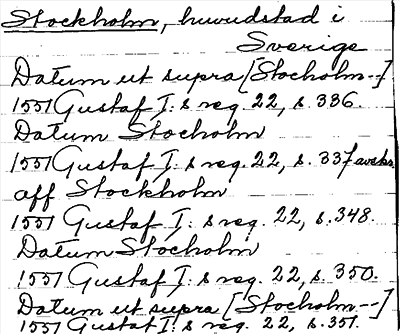 Stockholm, huvudstad i
Sverige
Datum ut supra [Stocholm--]
1551 Gustaf I:s reg. 22, s. 336.
Datum Stocholm
1551 Gustaf I:s reg. 22, s. 337
aff Stockholm
1551 Gustaf I:s reg. 22, s. 348.
Datum Stocholm
1551 Gustaf I:s reg. 22, s. 350.
Datum ut supra [Stocholm--]
1551 Gustaf I:s reg. 22, s. 351.